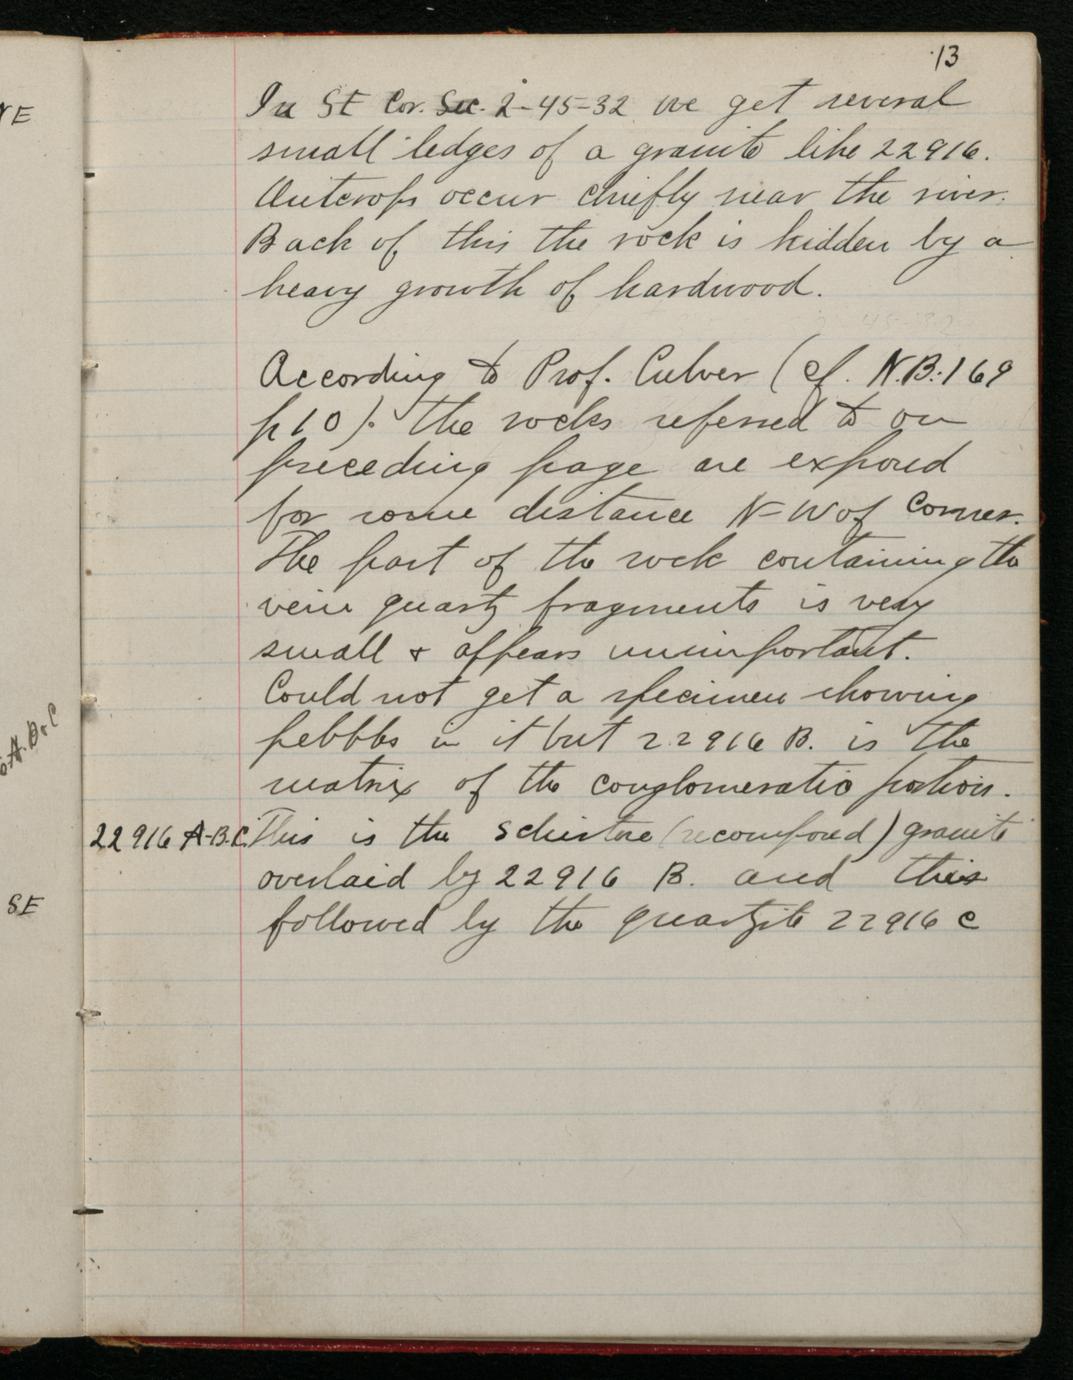 13
In SE Cor. Sec. 2-45-32 we get several
small ledges of a granite like 22916.
Outcrops occur chiefly near the river.
Back of this the rock is hidden by a
heavy growth of hardwood.
According to Prof. Culver (cf. N.B. 169
p 10). the rocks referred to on
preceding page are exposed
for some distance N-W of Corner.
The part of the rock containing the
vein quartz fragments is very
small & appears unimportant.
Could not get a specimen showing
pebbles in it but 22916 B. is the
matrix of the conglomeratic portion.
22916 A-B-C. This is the schistose (recomposed) granite
overlaid by 22916 B. and this
followed by the quartzite 22916 C
NE
A. B & C
SE